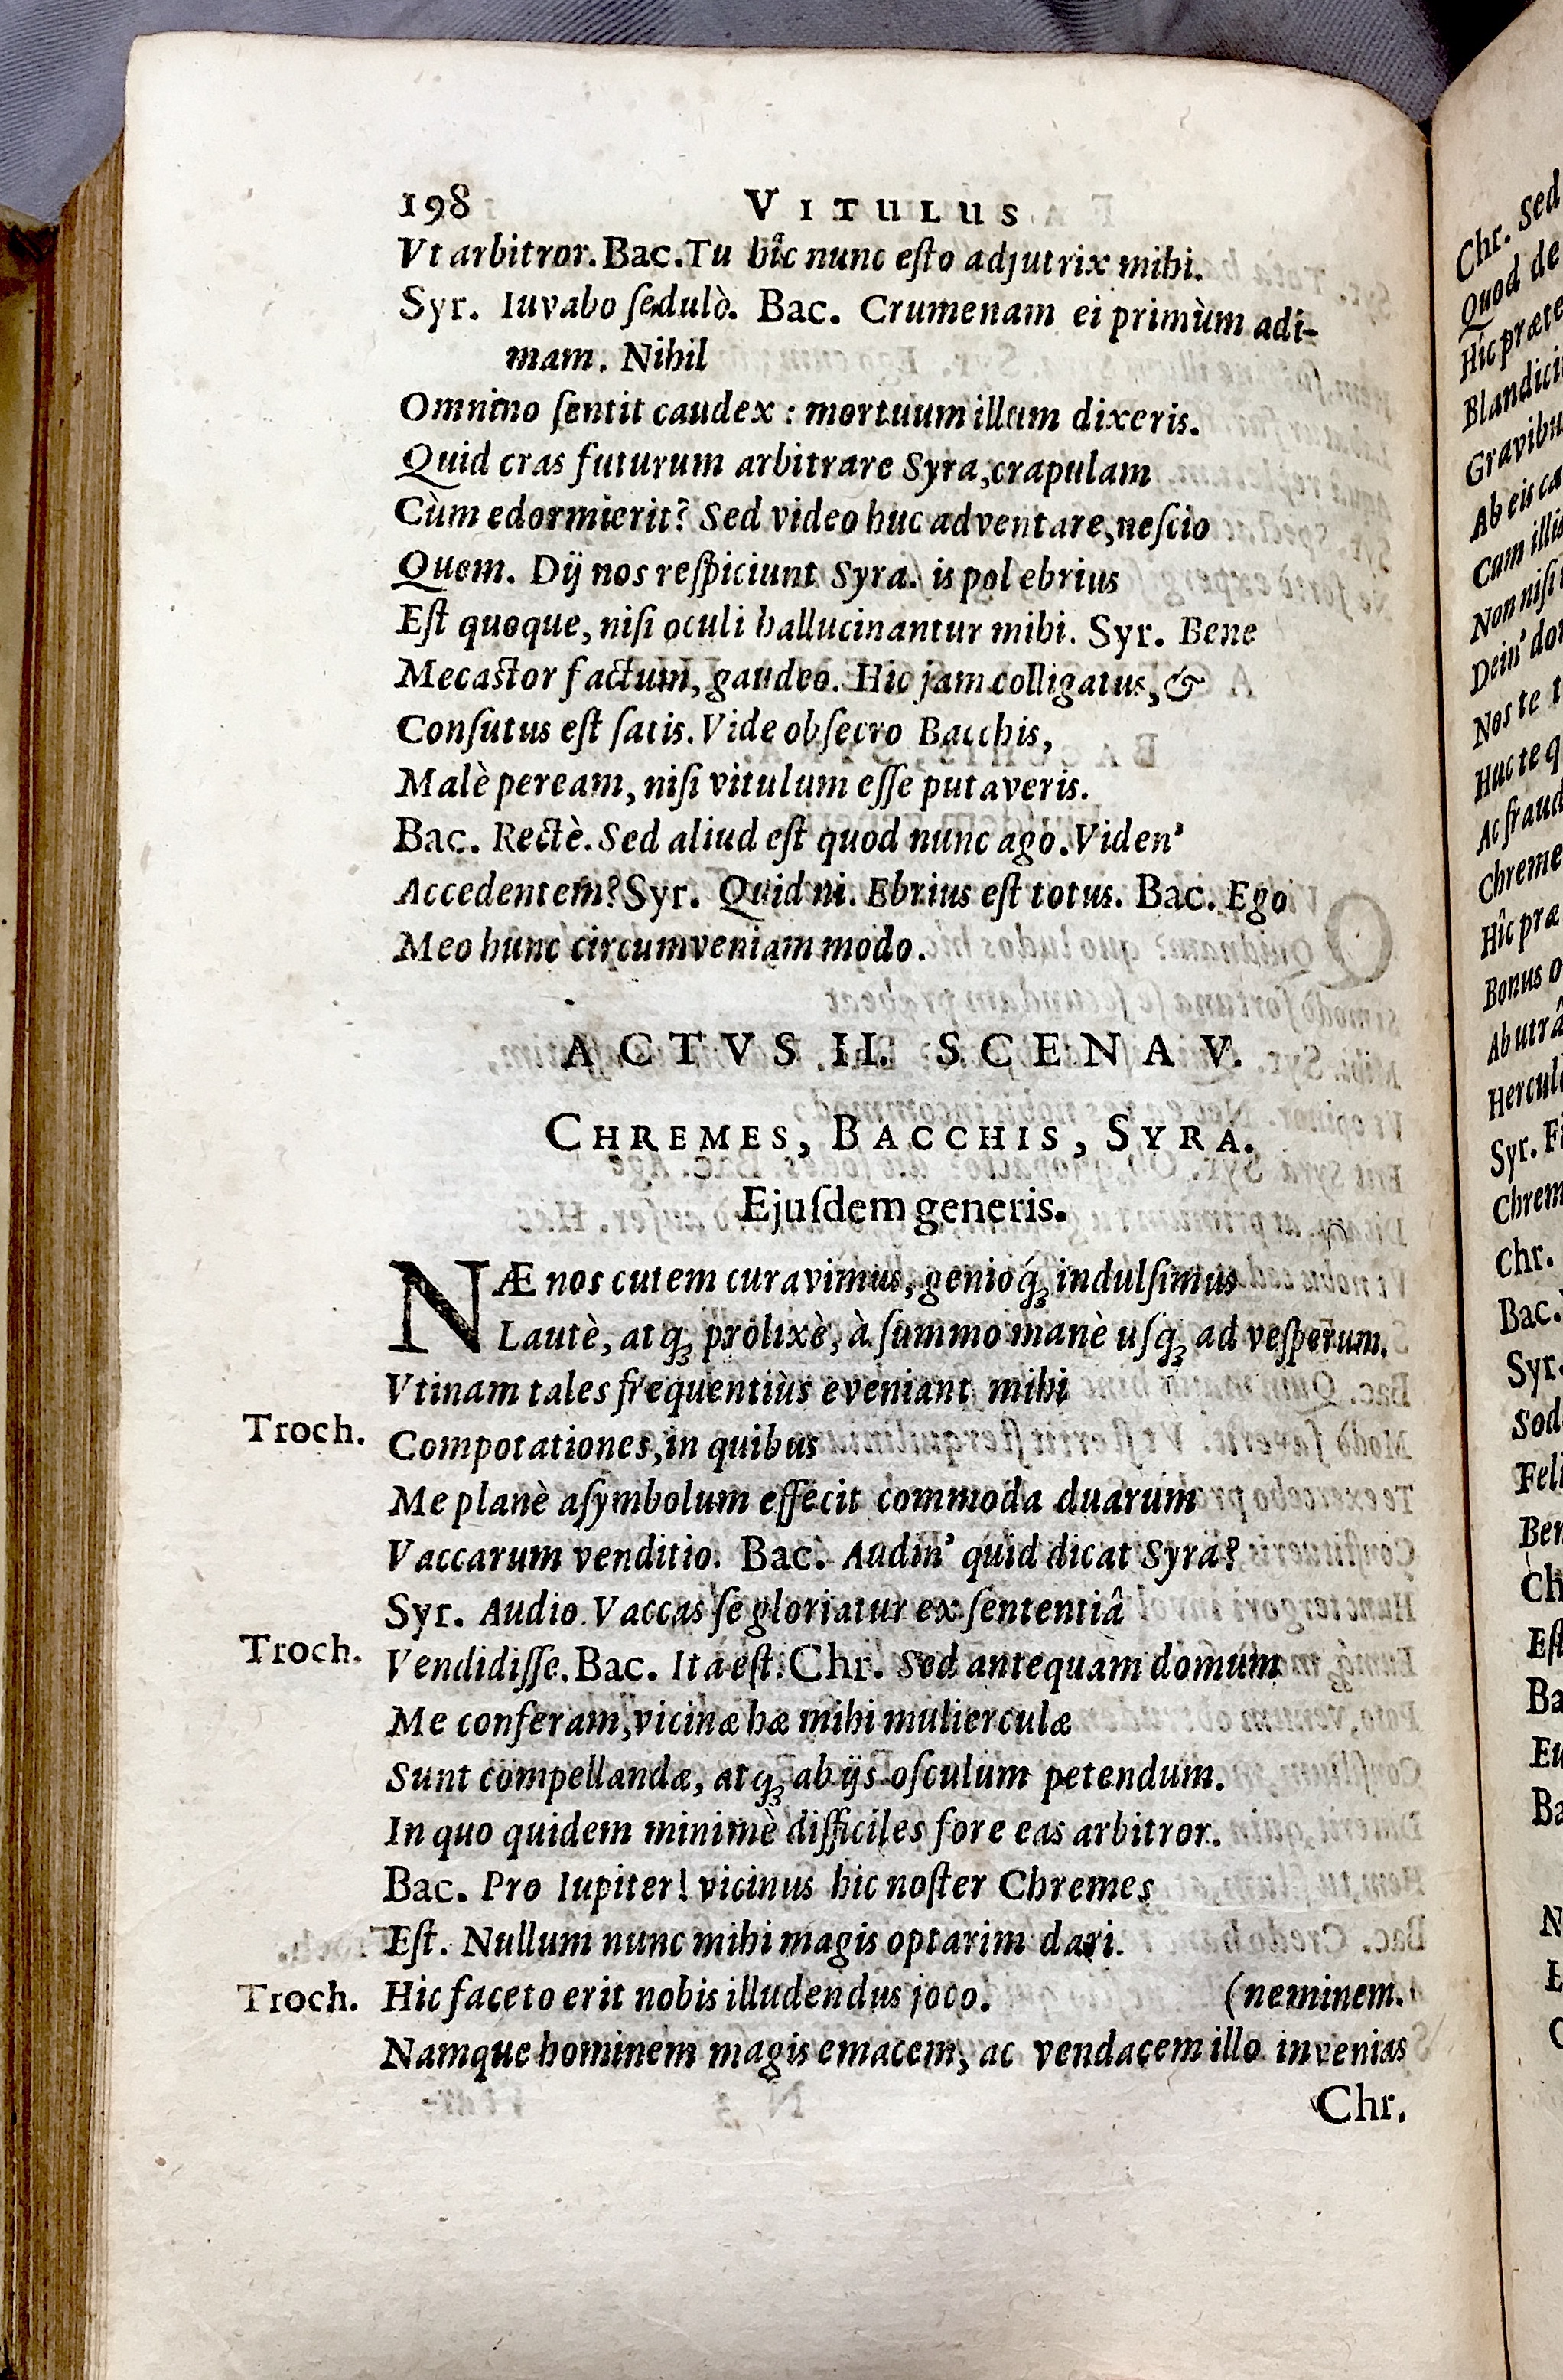 198 VITULUS
Vt arbitror. Bac. Tu hîc nunc eſto adjutrix mihi.
Syr. Iuvabo ſedulò. Bac. Crumenam ei primùm adi-
mam. Nihil
Omnino ſentit caudex : mortuum illum dixeris.
Quid cras futurum arbitrare Syra, crapulam
Cùm edormierit? Sed video huc adventare, neſcio
Quem. Dij nos reſpiciunt Syra. is pol ebrius
Eſt quoque, niſi oculi hallucinantur mihi. Syr. Bene
Mecastor factum, gaudeo. Hic jam colligatus, &
Conſutus eſt ſatis. Vide obſecro Bacchis,
Malè peream, niſi vitulum eſſe putaveris.
Bac. Rectè. Sed aliud eſt quod nunc ago. Viden'
Accedentem? Syr. Quid ni. Ebrius eſt totus. Bac. Ego
Meo hunc circumveniam modo.
ACTVS II. SCENA V.
CHREMES, BACCHIS, SYRA.
Ejuſdem generis.
NÆ nos cutem curavimus, genioq́ꝫ indulſimus
Lautè, atqꝫ prolixè, à ſummo manè uſqꝫ ad veſperum.
Vtinam tales frequentiùs eveniant mihi
Troch. Compotationes, in quibus
Me planè aſymbolum effecit commoda duarum
Vaccarum venditio. Bac. Audin' quid dicat Syra?
Syr. Audio. Vaccas ſe gloriatur ex ſententiâ
Troch. Vendidiſſe. Bac. Ita eſt. Chr. Sed antequam domum
Me conferam, vicinæ hæ mihi mulierculæ
Sunt compellandæ, atqꝫ ab ijs oſculum petendum.
In quo quidem minimè difficiles fore eas arbitror.
Bac. Pro Iupiter! vicinus hic noſter Chremes
Eſt. Nullum nunc mihi magis optarim dari.
Troch. Hic faceto erit nobis illudendus joco. (neminem.
Namque hominem magis emacem, ac vendacem illo invenias
Chr.